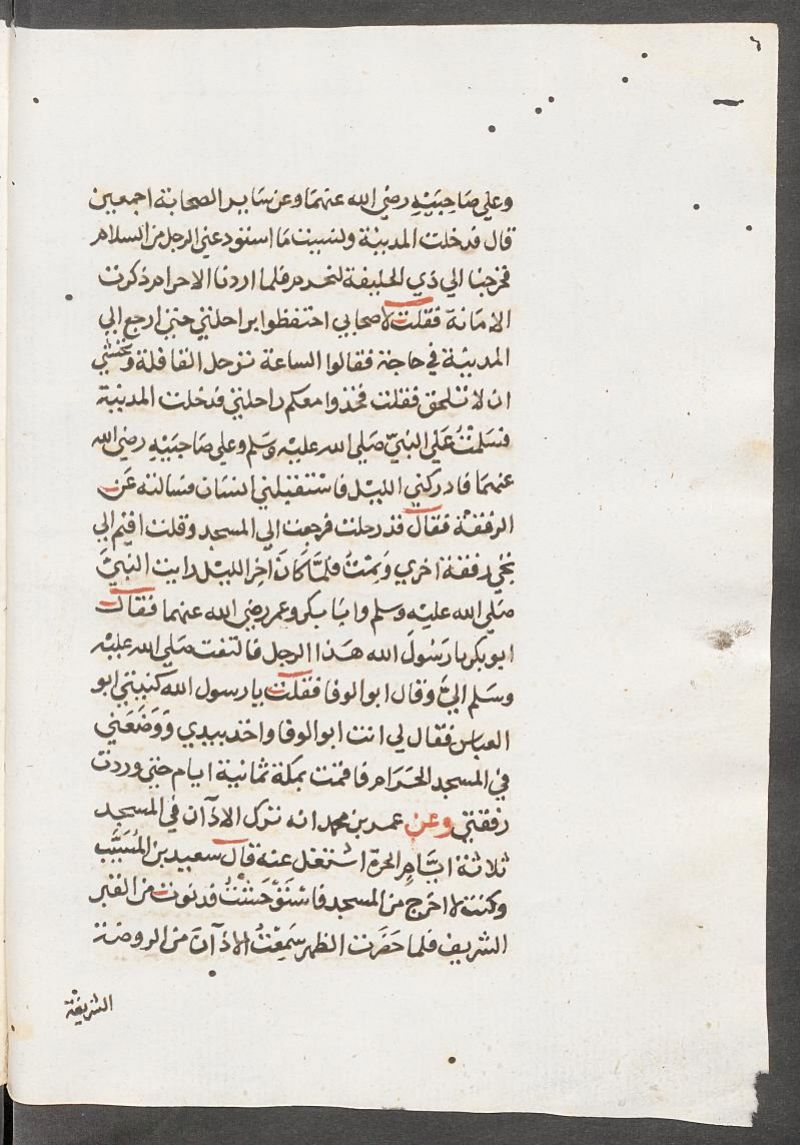 وعلي صَاحِبَيْهِ رضي الله عنهمَا وعن سَاير الصحابة اجمعين
قال فدخلت المدينة ونسيت مَا استودعني الرجل من السلام
فخرجنا الي ذي الحليفة لنحرم فلما اردنا الاحرام ذكرت
الامانة فقلت لاصحابي احتفظوا براحلتي حتي ارجع الي
المدينة في حاجة فقالوا الساعة نرحل القافلة ونخشي
ان لا تلحق فقلت فخذوا معكم راحلتي فدخلت المدينة
فسَلمْتُ عَلَي النبيّ صَلي الله عليه وسَلم وعلي صَاحِبَيْهِ رضي الله
عنهمَا فادركني الليل فاستقبلني انسَان فسَالته عَن
الرفقة فقال قد رحلت فرجعت الي المسجد وقلت اقيم الي
تجي رفقة اخري ونمْتُ فلمَّا كَانَ اخر الليل رايت النبيَّ
صَلي الله عليه وسلم وابَا بكر وعمر رضي الله عنهما فقال
ابو بكر يا رَسُولَ الله هَذا الرجل فالتفت صَلي الله عليه
وسَلم اليَّ وقال ابو الوفا فقلت يا رسول الله كنيتي ابو
العباس فقال لي انت ابو الوفا واخذ بيدي وَوَضَعَني
في المسجد الحَرَام فاقمت بمكة ثمانية ايام حتي وردت
رفقتي وعن عمر بن محمد انه نترك الاذآن في المسجد
ثلاثة ايَّامِ الحرة اشتغل عنه قال سعيد بن المُسَيَّب
وكنت لا اخرج من المسجد فاسْتَوْحَشْتُ فدنوت من القبر
الشريف فلما حَضَرت الظهر سَمِعْتُ الاذآنَ من الروضة
الشريفة